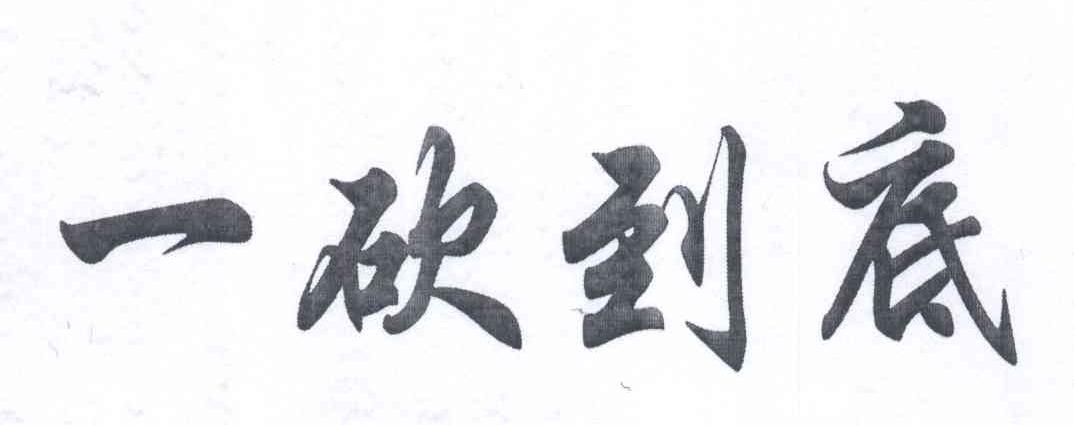 一砍到底